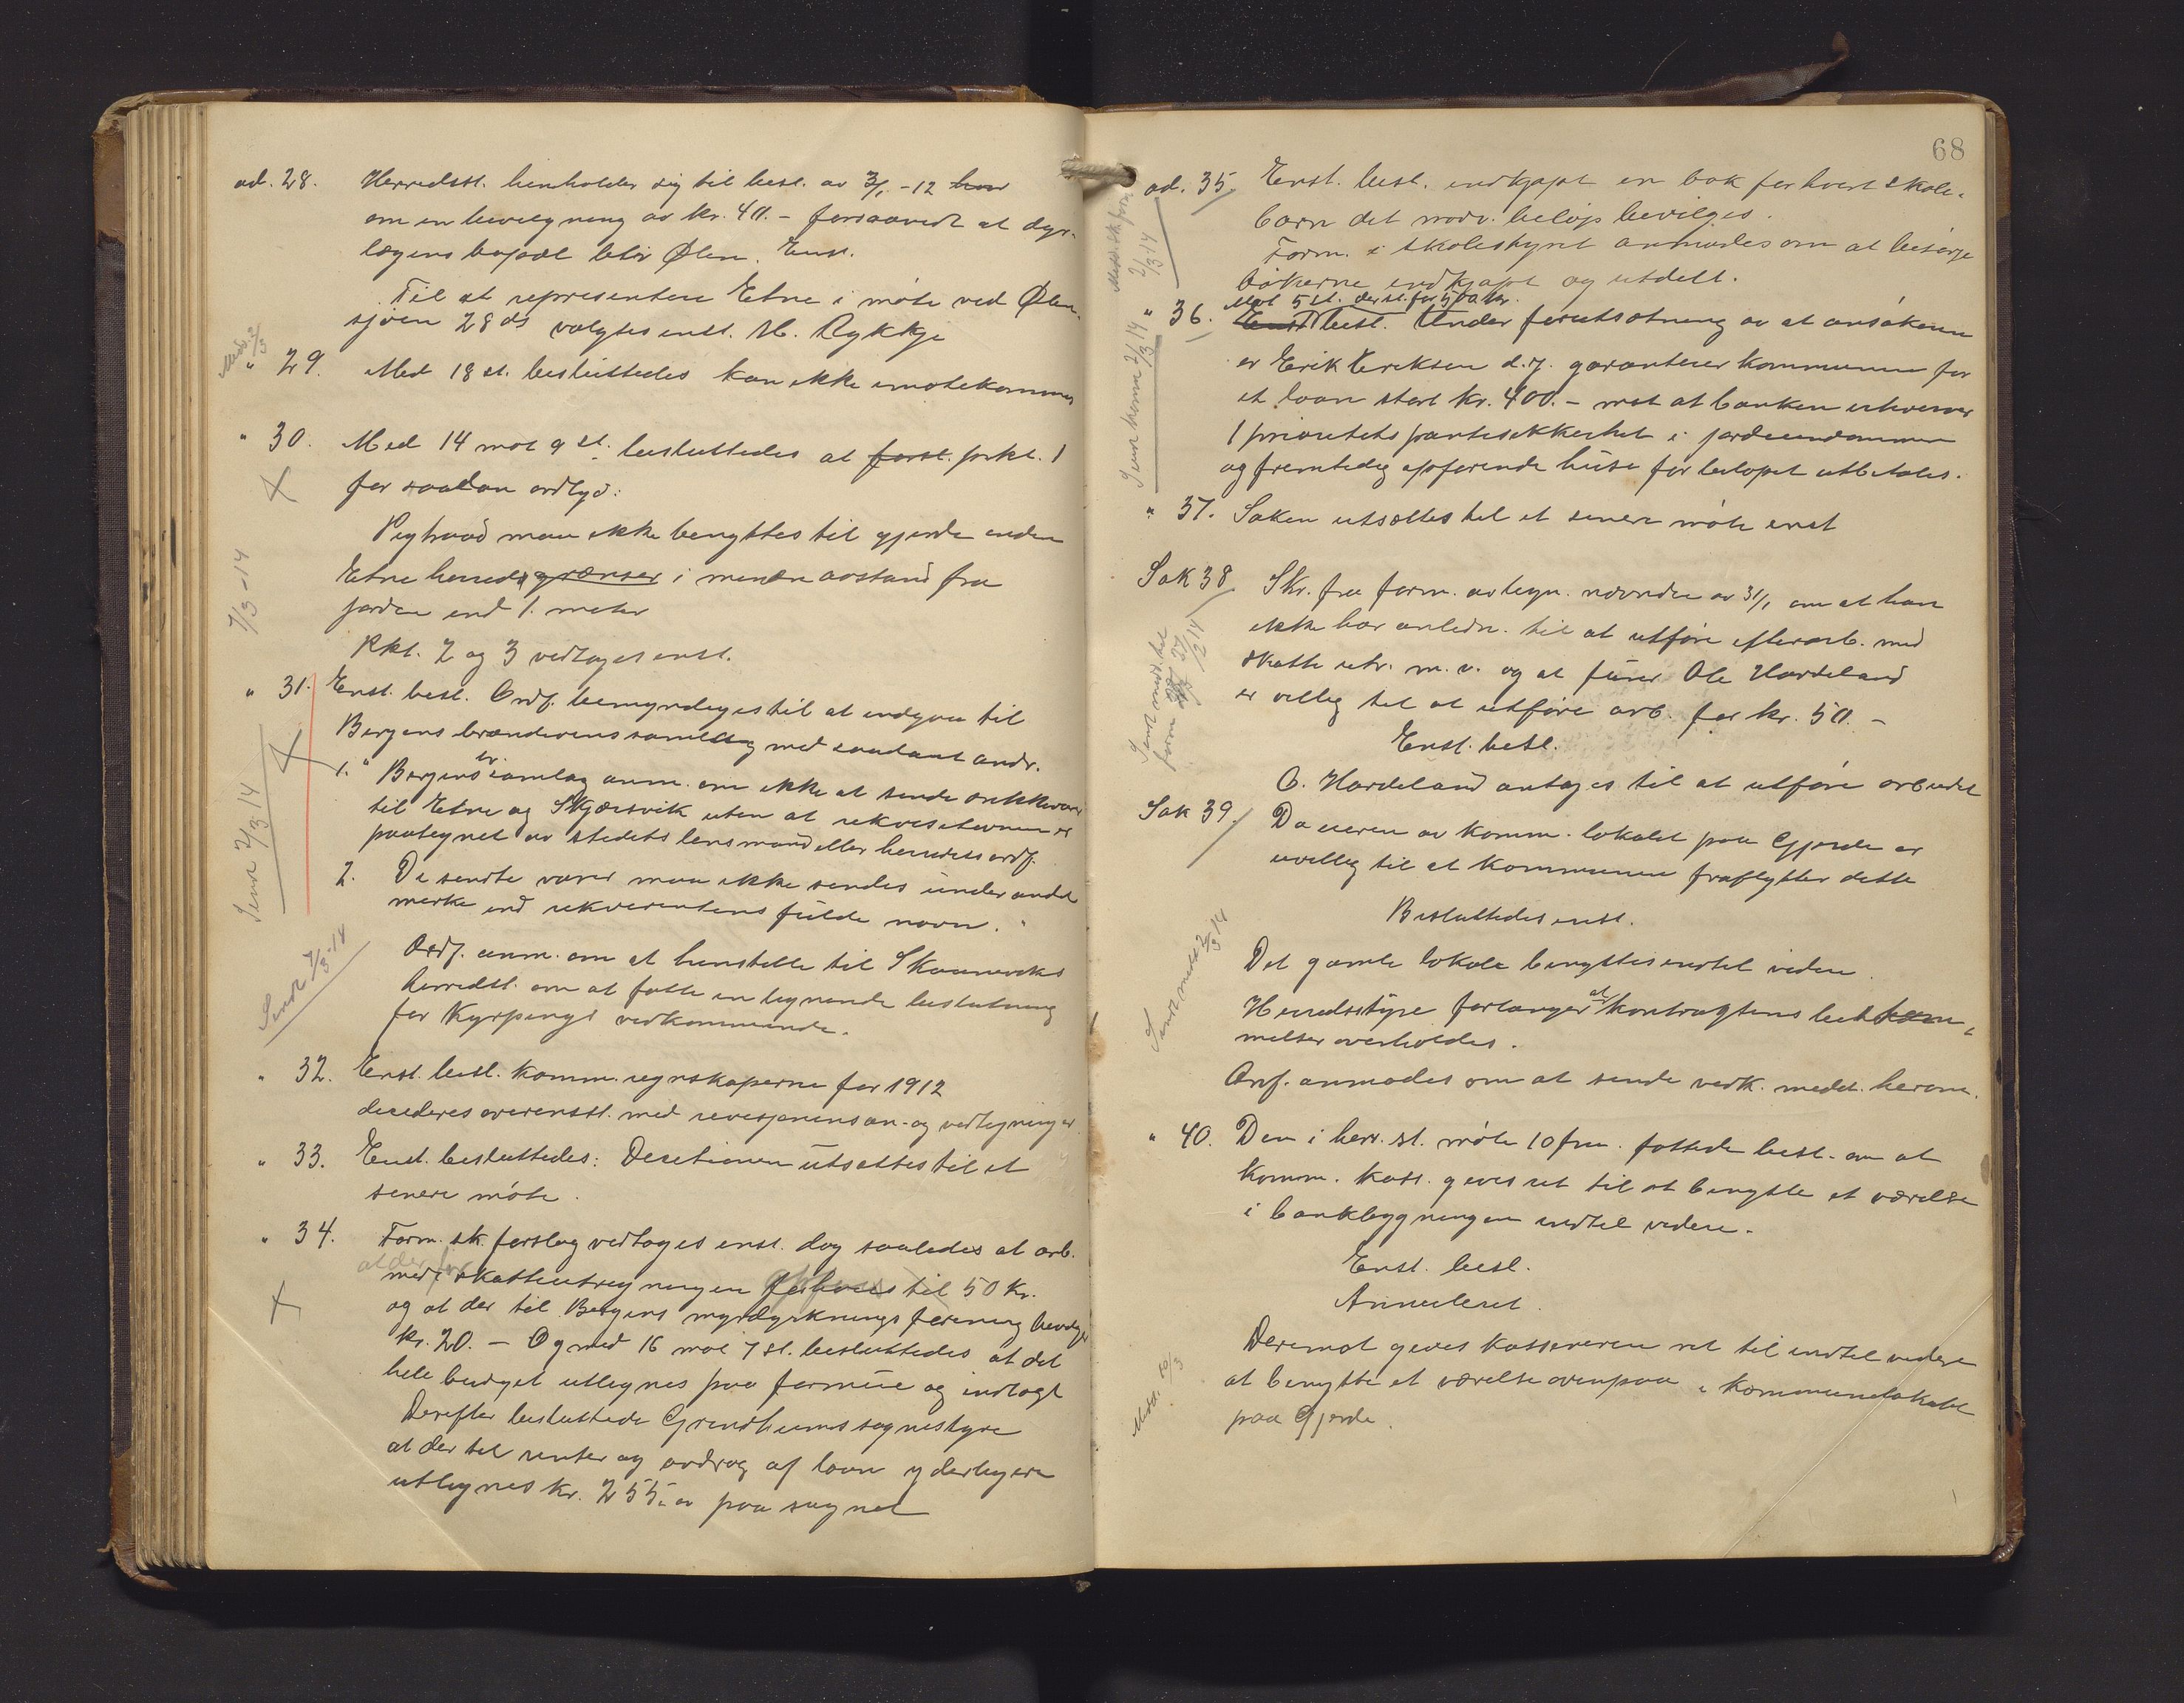 ad. 28. Herredsst. henholder sig til besl. av 3/1 -12
om en bevilgning av kr. 40.- forsaavidt at dyr-
lægens bopæl blir Ølen. Enst.
Til at representere Etne i møte ved Ølen-
sjøen 28 ds valgtes enst. M. Rykkje
Medd. 2/3
" 29. Med 18 st. besluttedes kan ikke imøtekommes
" 30. Med 14 mot 9 st. besluttedes at forst. pkt. 1
faar saadan ordlyd:
Pigtraad maa ikke benyttes til gjerde inden
Etne herreds grænser i mindre avstand fra
jorden end 1. meter
7/3 -14
Pkt. 2 og 3 vedtages enst.
" 31. Enst. besl. Ordf. bemyndiges til at indgaa til
Bergens brændevinssamlag med saadant andr.
1. " Bergens br. samlag anm. om ikke at sende drikkevarer
til Etne og Skjærsvik uten at rekvisitionen er
paategnet av stedets lensmand eller herredets ordf.
2. De sendte varer maa ikke sendes under andet
merke end rekvirentens fulde navn. "
Sendt 2/3 14
Ordf. anm. om at henstille til Skaaneviks
herredst. om at fatte en lignende beslutning
for Kyrpings vedkommende.
Sendt 7/3-14
" 32. Enst. besl. Komm. regnskaperne for 1912
decideres overensst. med revisjonens an- og vedtegninger
" 33. Enst. besluttedes: Decisionen utsættes til et
senere møte.
" 34. Form. sk. forslag vedtages enst. dog saaledes at arb.
at der for
med skatteutregningen til 50 kr.
og at der til Bergens myrdyrkningsforening bevilges
kr. 20. - Og med 16 mot 7 st. besluttedes at det
hele budget utlignes paa formue og indtægt
Derefter besluttede Grindheims sognestyre
at der til renter og avdrag af laan yderligere
utlignes kr. 255. paa sognet
68
ad. 35 Enst. besl. indkjøpt en bok for hvert skole-
barn det nødv. beløp bevilges.
Form. i skolestyret anmodes om at besørge
bøkerne indkjøpt og utdelt.
2/3 14
Mot 5 st. der st. for 500 kr.
" 36. Enst besl. Under forutsætning av at ansøkeren
er Erik Eriksen d.y. garanterer kommunen for
et laan stort kr. 400. - mot at banken erhverver
1 prioritets pantesikkerhet i jordeiendommen
og fremtidig opførende huse før beløpet utbetales.
2/3 14
" 37. Saken utsættes til et senere møte enst
Sak 38 Skr. fra form. av lign. nævnden av 31/1 om at han
ikke har anledn. til at utføre efterarb. med
skatte utr. m. v. og at furer Ole Hardeland
er villig til at utføre arb. for kr. 50. -
Enst. besl.
O. Hardeland antages til at utføre arbeidet
Sendt medd. til
form 27/2 14
Sak 39. Da eieren av komm. lokalet paa Gjerde er
uvillig til at kommunen fraflytter dette
Besluttedes enst.
Det gamle lokale benyttes indtil videre.
Herredsstyre forlanger at kontraktens bestem-
melser overholdes.
Orf. anmodes om at sende vedk. medd. herom.
Sendt medd 2/3 14
" 40. Den i herr. st. møte 10 fm. fattede besl. om at
komm. kass. gives ret til at benytte et værelse
i bankbygningen indtil videre.
Enst. besl.
Annuleret.
Derimot gives kassereren ret til indtil videre
at benytte et værelse ovenpaa i kommunelokalet
paa Gjerde.
Medd. 10/3